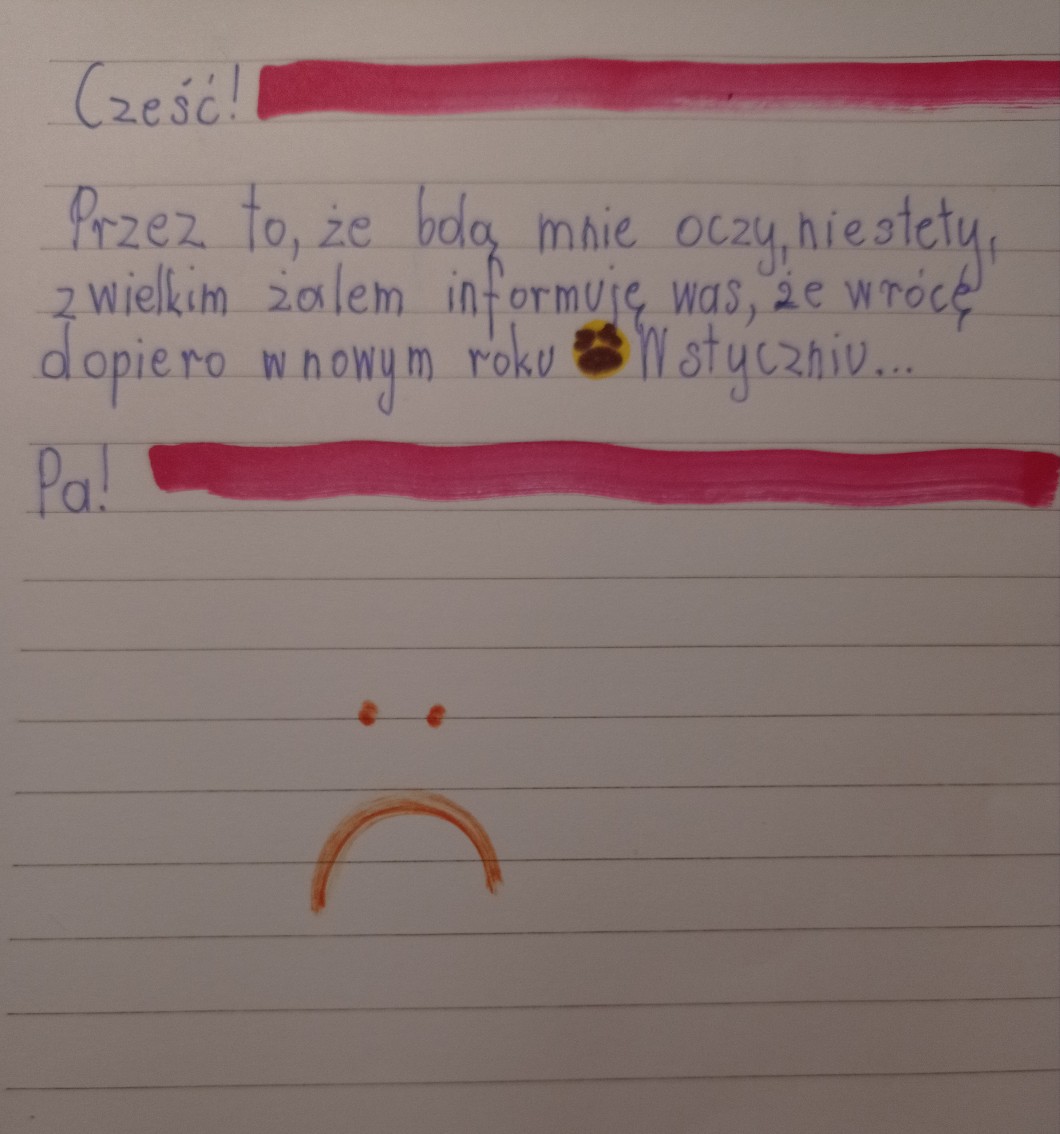 Cześć!
Przez to, że bolą mnie oczy, niestety,
z wielkim żalem informuję was, że wrócę
dopiero w nowym roku W styczniu...
Pa!